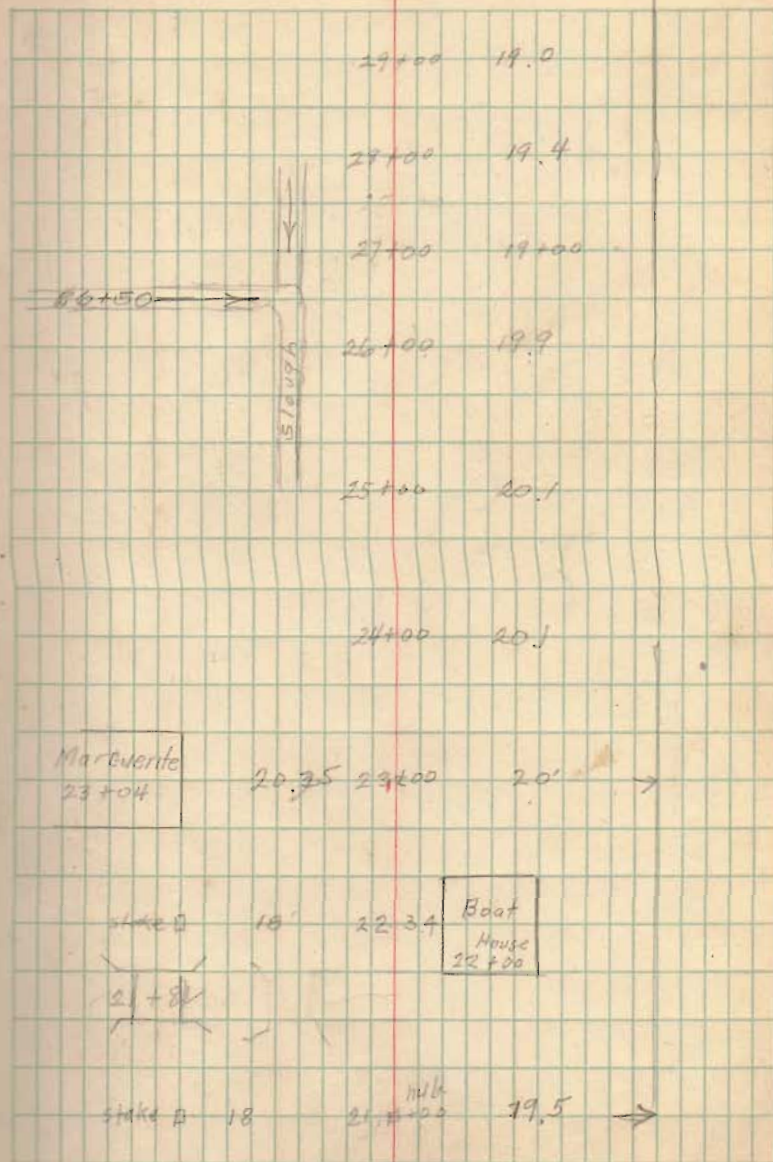 29+00 19.0
28+00 19.4
27+00 19+00
66+50
26+00 19.9
Slough
25+00 20.1
24+00 20.1
Marguerite
23+04
20.25 23+00 20'
stake 18' 22 34
Boat
House
22+00
21+81
hub
stake 18 21+00 19.5